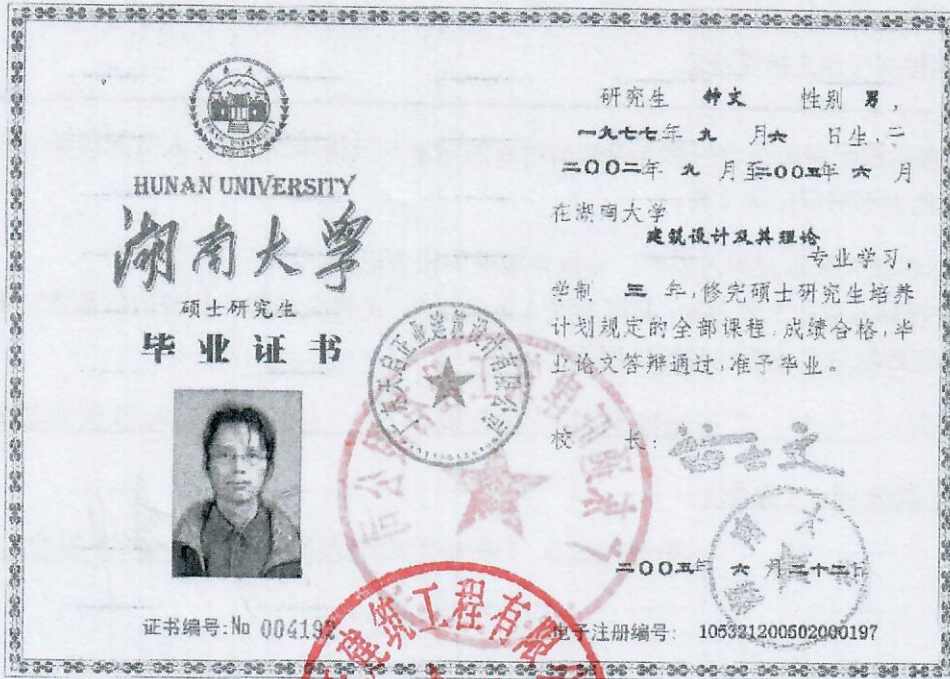 HUNAN UNIVERSITY
湖南大学
硕士研究生
毕业证书
证书编号:No 004192
研究生 钟文 性别 男,
一九七七年 九 月六 日生,二
二〇〇二年 九 月至二〇〇五年 六 月
在湖南大学
建筑设计及其理论
专业学习,
学制 三 年,修完硕士研究生培养
计划规定的全部课程,成绩合格,毕
业论文答辩通过,准予毕业。
校 长:
二〇〇五年 六 月二十二日
电子注册编号: 105321200502000197
建筑工程有限